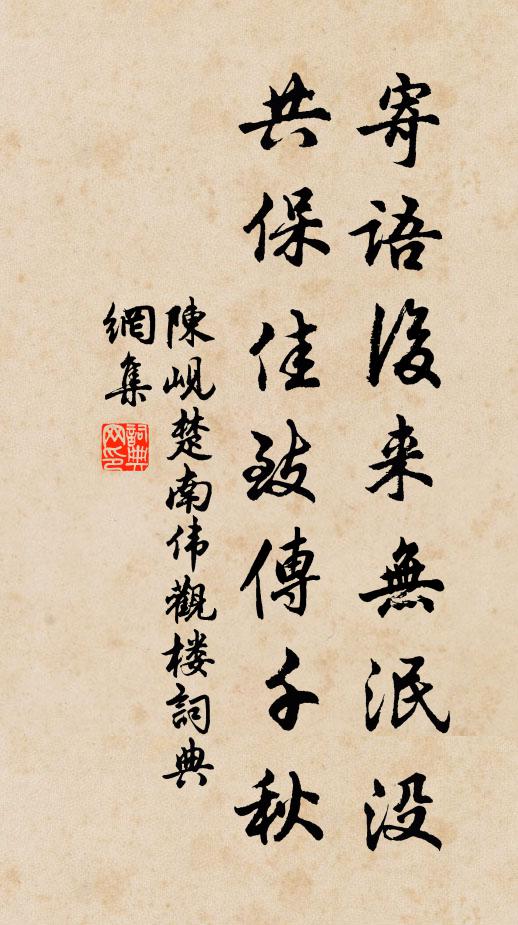 寄語後来無泯没
共保佳致傳千秋
陳峴楚南伟觀楼詞典
網集
詞典网印